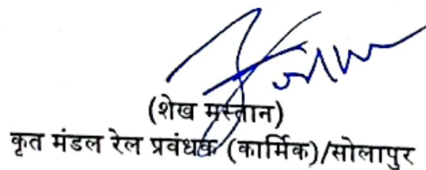 (शेख मस्तान)
कृत मंडल रेल प्रवंधक (कार्मिक)/सोलापुर